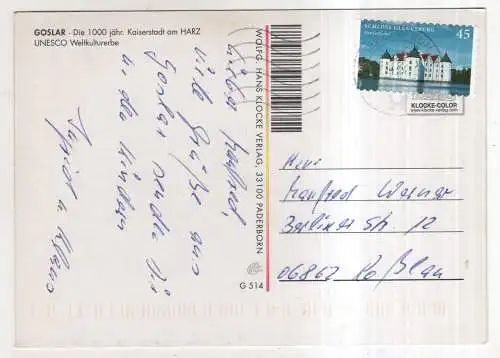 GOSLAR - Die 1000 jähr. Kaiserstadt am HARZ
UNESCO Weltkulturerbe
Lieber Manfred,
viele Grüße aus
Goslar senden Dir
die Kinder
u. Klaus
WOLFG. HANS KLOCKE VERLAG, 33100 PADERBORN
G 514
SCHLOSS GLÜCKSBURG
45
KLOCKE-COLOR
www.klocke-verlag.com
Herrn
Manfred Werner
Berliner Str. 12
06862 Roßlau